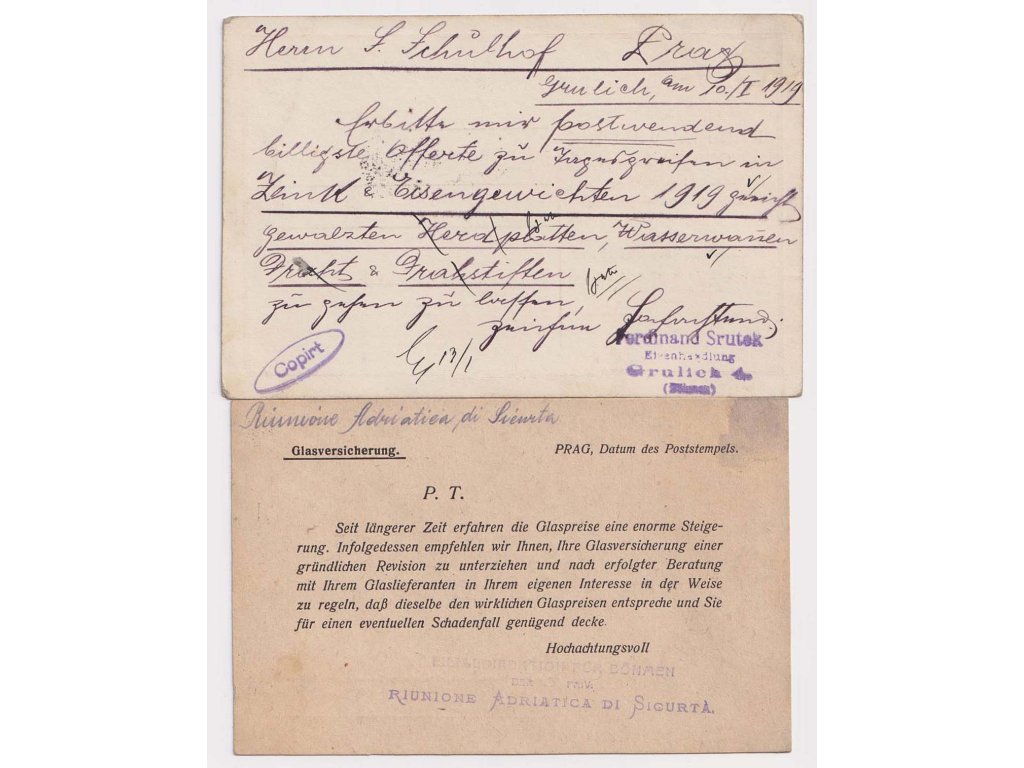 Herrn S. Schulhof Prag
Grulich, am 10./I 1919
Erbitte mir postwendend
billigste Offerte zu Tagespreisen in
Zink & Eisengewichten 1919 geaicht
gewalzten Herdplatten, Wasserwannen
Draht & Drahtstiften
zu gehen zu lassen,
zeichne Hochachtend
13/1
Copirt
Ferdinand Srutek
Eisenhandlung
Grulich
(Böhmen)
Riunione Adriatica di Sicurta
Glasversicherung.
PRAG, Datum des Poststempels.
P. T.
Seit längerer Zeit erfahren die Glaspreise eine enorme Steige-
rung. Infolgedessen empfehlen wir Ihnen, Ihre Glasversicherung einer
gründlichen Revision zu unterziehen und nach erfolgter Beratung
mit Ihrem Glaslieferanten in Ihrem eigenen Interesse in der Weise
zu regeln, daß dieselbe den wirklichen Glaspreisen entspreche und Sie
für einen eventuellen Schadenfall genügend decke.
Hochachtungsvoll
FÜR BÖHMEN
DER PRIV.
RIUNIONE ADRIATICA DI SICURTÀ.